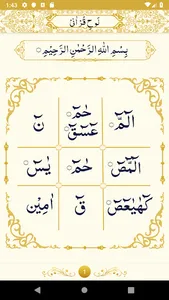 1:43
لوح قرآنی
بِسْمِ اللهِ الرَّحْمٰنِ الرَّحِيْمِ
الٓمّٓ حٰمٓ عٓسٓقٓ نٓ
الٓمّٓصٓ حٰمٓ يٰسٓ
كٓهٰيٰعٓصٓ قٓ اٰمِيْن